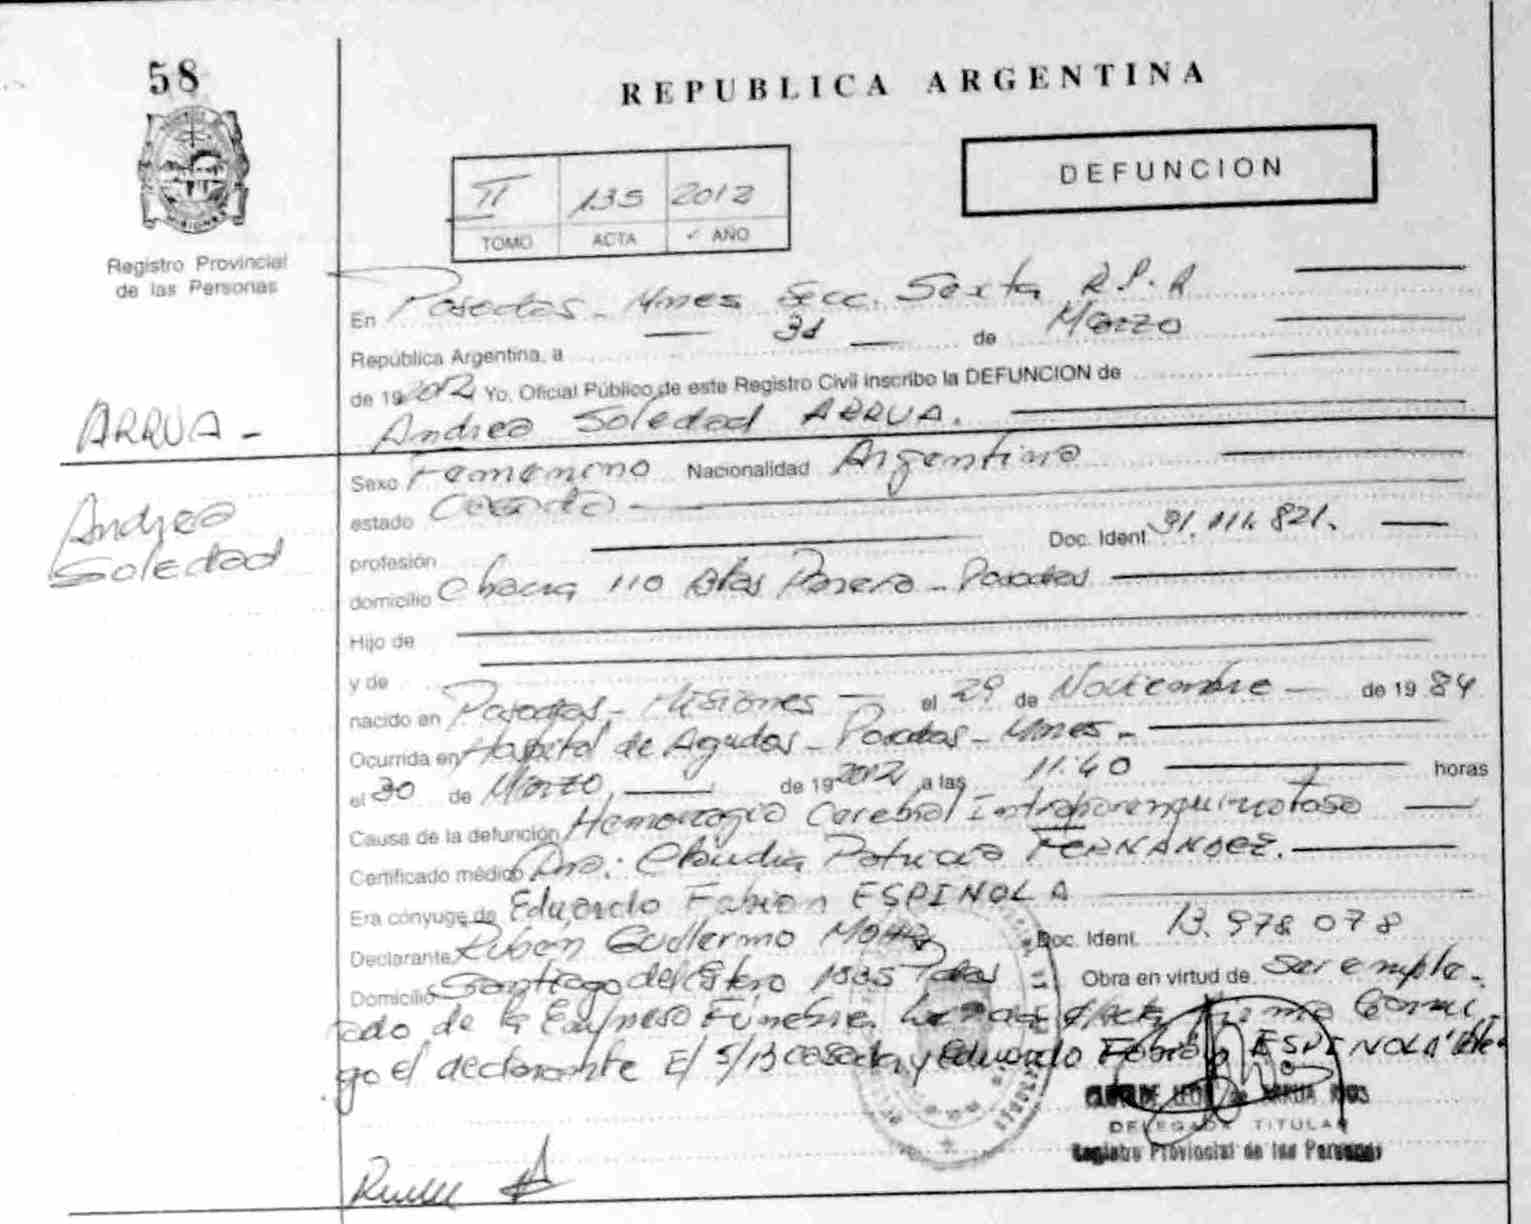 58
REPUBLICA ARGENTINA
DEFUNCION
II 135 2012
TOMO ACTA AÑO
MISIONES
Registro Provincial
de las Personas
En Posadas - Mnes Secc. Sexta R.P.P
República Argentina, a 31 de Marzo
de 19 2012 Yo, Oficial Público de este Registro Civil inscribo la DEFUNCION de
ARRUA -
Andrea Soledad ARRUA.
Andrea
Soledad
Sexo Femenino Nacionalidad Argentina
estado Casada
profesión Doc. Ident. 31.111.821.
domicilio Chacra 110 Blas Parera - Posadas
Hijo de
y de
nacido en Posadas - Misiones el 29 de Noviembre de 19 84
Ocurrida en Hospital de Agudos - Posadas - Mnes -
el 30 de Marzo de 19 2012 a las 11:40 horas
Causa de la defunción Hemorragia Cerebral Intraparenquimatosa
Certificado médico Dra: Claudia Patricia FERNANDEZ.
Era cónyuge de Eduardo Fabian ESPINOLA
Declarante Rubén Guillermo Doc. Ident. 13.978.078
Domicilio Santiago del Estero 1835 Pdas Obra en virtud de ser emplea-
do de la Empresa Fúnebre firma Conmi-
go el declarante E/ S/B casada y Eduardo Fabian ESPINOLA
DELEGADA TITULAR
Registro Provincial de las Personas